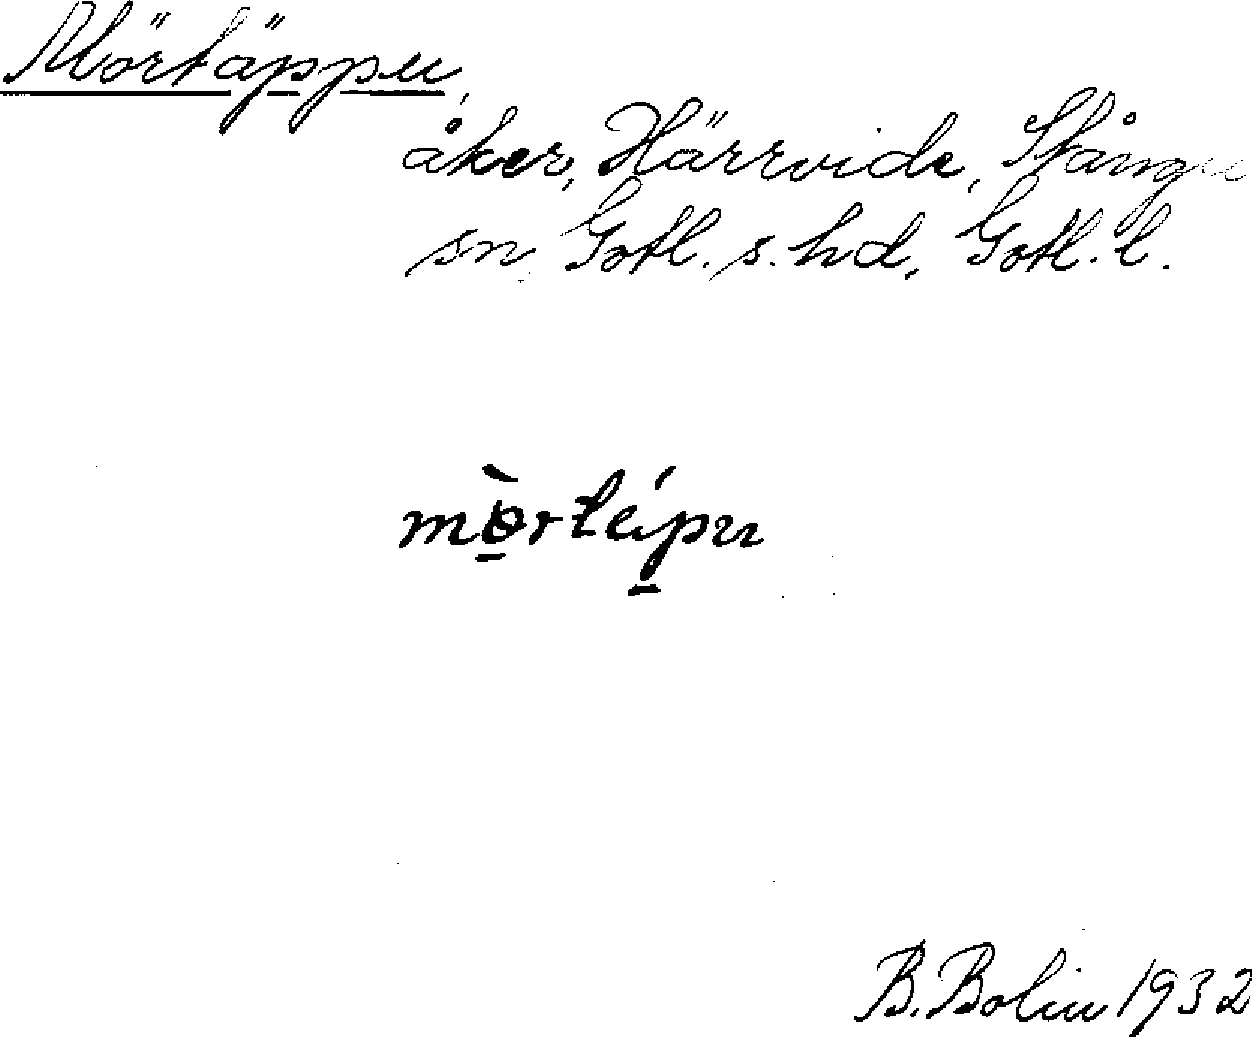 Mörtäppu,
åker, Härrvide, Stånga
sn, Gotl. s. hd, Gotl. l.
B. Bolin 1932